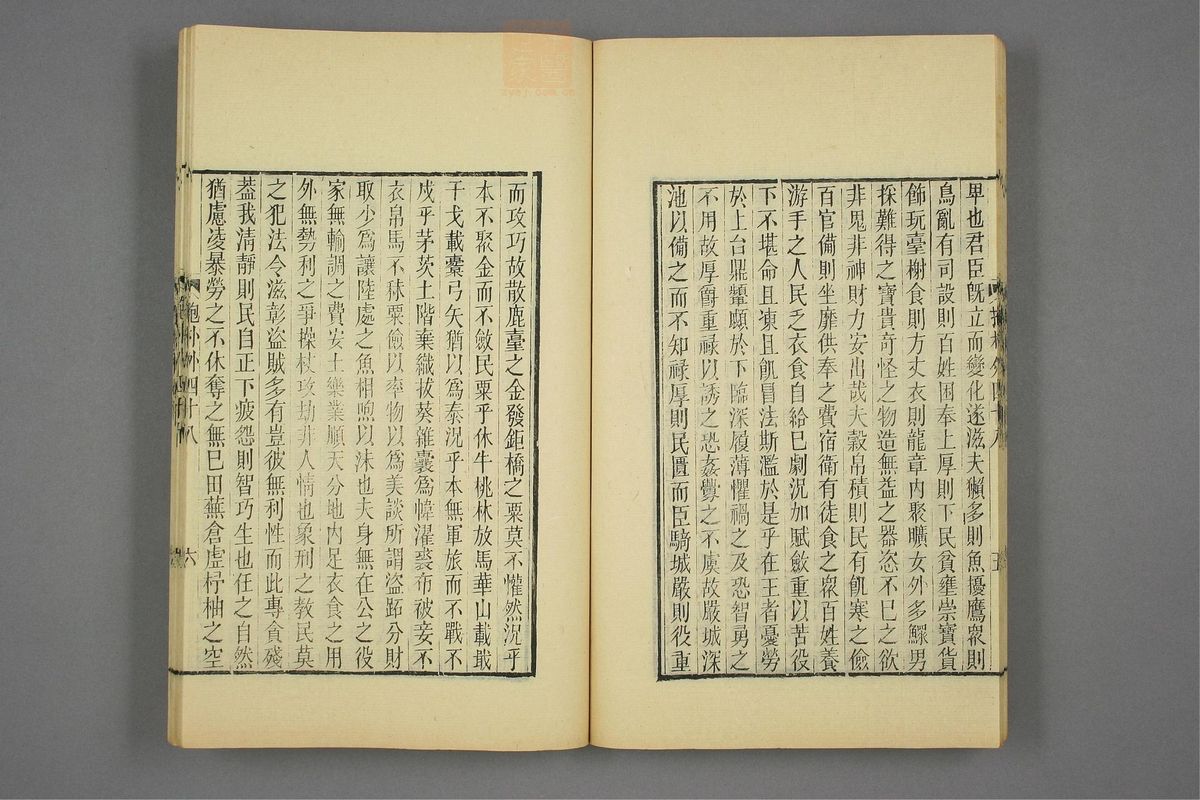 卑也君臣既立而變化遂滋夫獺多則魚擾鷹衆則
鳥亂有司設則百姓困奉上厚則下民貧壅崇寶貨
飾玩臺榭食則方丈衣則龍章內聚曠女外多鰥男
採難得之寶貴奇怪之物造無益之器恣不已之欲
非鬼非神財力安出哉夫穀帛積則民有飢寒之儉
百官備則坐靡供奉之費宿衛有徒食之衆百姓養
游手之人民乏衣食自給已劇況加賦斂重以苦役
下不堪命且凍且飢冒法斯濫於是乎在王者憂勞
於上台鼎顰顣於下臨深履薄懼禍之及恐智勇之
不用故厚爵重祿以誘之恐姦釁之不虞故嚴城深
池以備之而不知祿厚則民匱而臣驕城嚴則役重
而攻巧故散鹿臺之金發鉅橋之粟莫不懽然況乎
本不聚金而不斂民粟乎休牛桃林放馬華山載戢
干戈載櫜弓矢猶以爲泰況乎本無軍旅而不戰不
戍乎茅茨土階棄織拔葵雜囊爲幃濯裘布被妾不
衣帛馬不秣粟儉以率物以爲美談所謂盜跖分財
取少爲讓陸處之魚相喣以沫也夫身無在公之役
家無輸調之費安土樂業順天分地內足衣食之用
外無勢利之爭操杖攻劫非人情也象刑之教民莫
之犯法令滋彰盜賊多有豈彼無利性而此專貪殘
葢我淸靜則民自正下疲怨則智巧生也任之自然
猶慮凌暴勞之不休奪之無已田蕪倉虛杼柚之空
抱朴外四十八
六